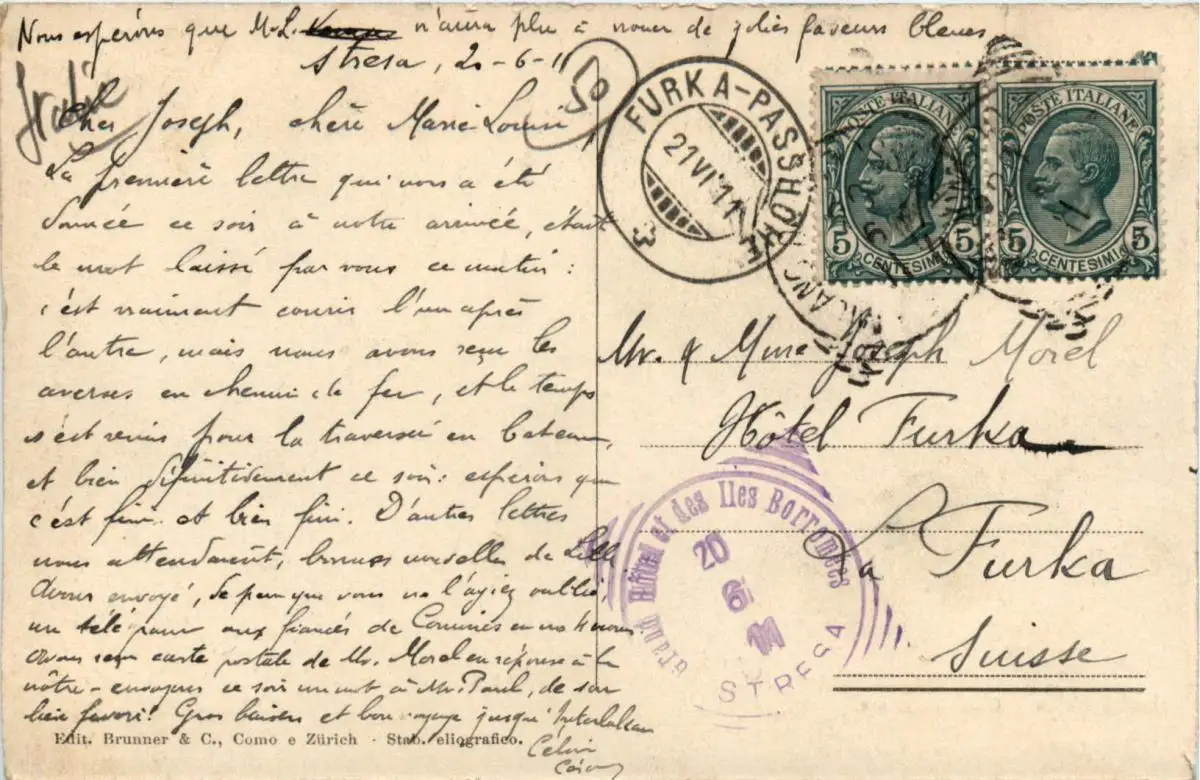 Nous espérons que M.L. n'aura plu à nouer de jolies faveurs bleues
Stresa, 20-6-11
Italie
50
Cher Joseph, chère Marie Louise
La première lettre qui vous a été
donnée ce soir à notre arrivée, étant
le mot laissé par vous ce matin :
c'est vraiment courir l'un après
l'autre, mais nous avons reçu les
averses en chemin de fer, et le temps
s'est remis pour la traversée en bateau,
et bien définitivement ce soir : espérons que
c'est fini et bien fini. D'autres lettres
nous attendaient, bonnes nouvelles de Lille
Avons envoyé, de peur que vous ne l'ayiez oublié,
un télé pour aux fiancés de Comines en nos 4 noms
Avons reçu carte postale de Mr. Morel en réponse à la
nôtre - envoyons ce soir un mot à Mr. Paul, de son
bien favori! Gros baisers et bon voyage jusqu'Interlaken
Edit. Brunner & C., Como e Zürich - Stab. eliografico.
FURKA-PASSHÖHE
21 VI 11
3
POSTE ITALIANE
5 CENTESIMI 5
POSTE ITALIANE
5 CENTESIMI 5
Mr. & Mme Joseph Morel
Hôtel Furka
La Furka
Suisse
Grand Hôtel et des Iles Borromées
20 6 11
STRESA